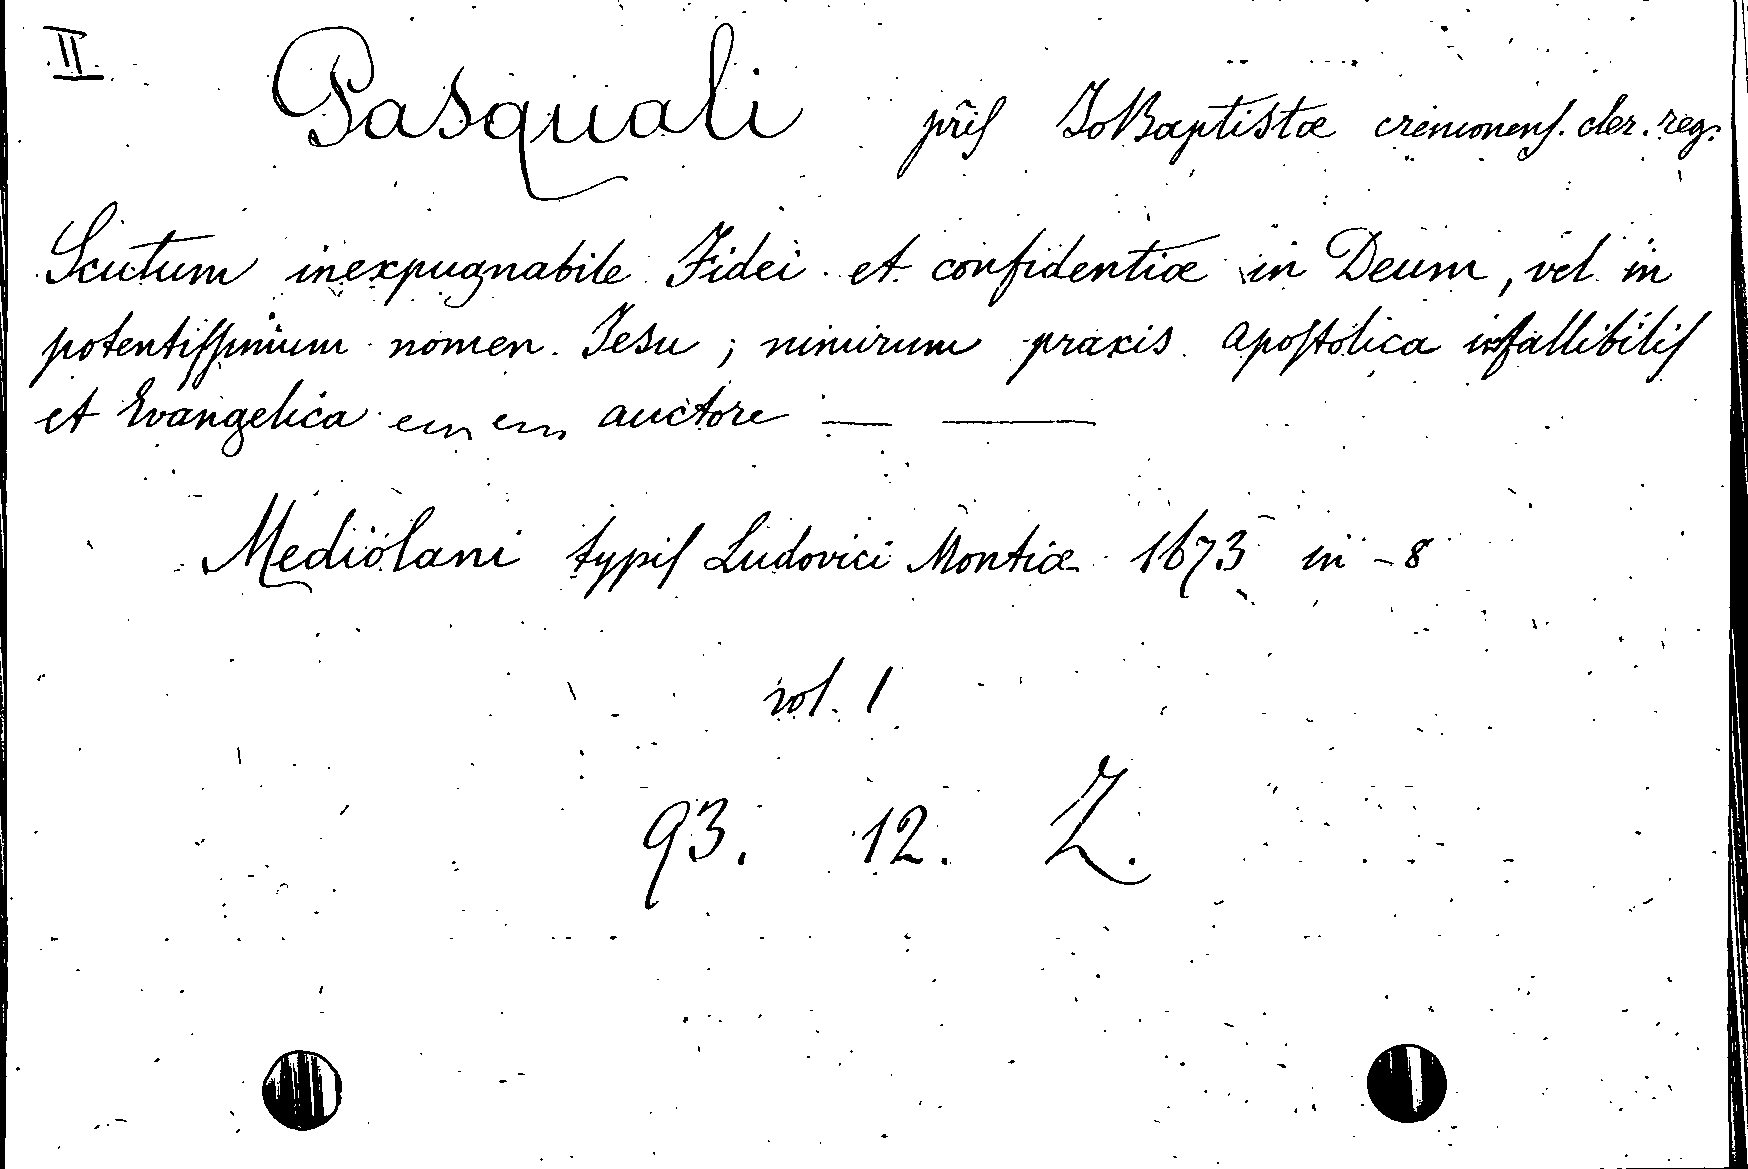 II
Pasquali pr̃is Jo Baptistæ cremonens. cler. reg.
Scutum inexpugnabile Fidei et confidentiæ in Deum, vel in
potentissimum nomen Jesu ; nimirum praxis apostolica infallibilis
et Evangelica auctore — —
Mediolani typis Ludovici Montiæ 1673 in - 8
vol. 1
93. 12. Z.